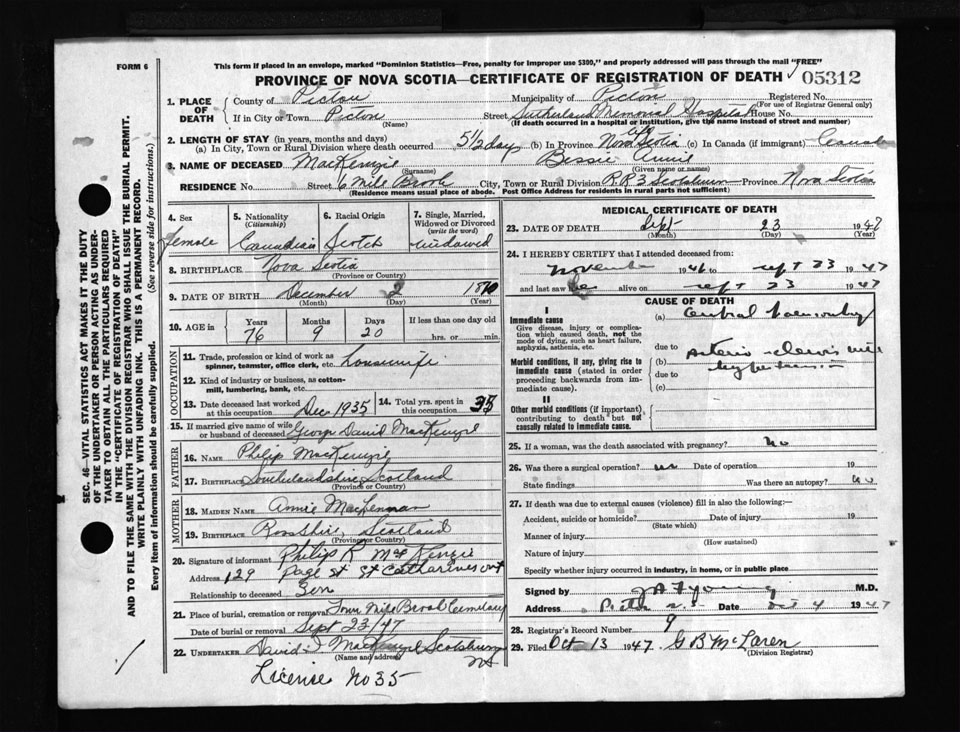 FORM 6
This form if placed in an envelope, marked "Dominion Statistics—Free, penalty for improper use $300," and properly addressed will pass through the mail "FREE"
PROVINCE OF NOVA SCOTIA—CERTIFICATE OF REGISTRATION OF DEATH 05312
SEC. 46—VITAL STATISTICS ACT MAKES IT THE DUTY
OF THE UNDERTAKER OR PERSON ACTING AS UNDER-
TAKER TO OBTAIN ALL THE PARTICULARS REQUIRED
IN THE "CERTIFICATE OF REGISTRATION OF DEATH"
AND TO FILE THE SAME WITH THE DIVISION REGISTRAR WHO SHALL ISSUE THE BURIAL PERMIT.
WRITE PLAINLY WITH UNFADING INK. THIS IS A PERMANENT RECORD.
Every item of information should be carefully supplied. (See reverse side for instructions.)
1. PLACE OF DEATH
County of Pictou Municipality of Pictou Registered No.
(For use of Registrar General only)
If in City or Town Pictou Street Sutherland Memorial Hospital House No.
(Name) (If death occurred in a hospital or institution, give the name instead of street and number)
2. LENGTH OF STAY (in years, months and days)
(a) In City, Town or Rural Division where death occurred 5½ days (b) In Province life Nova Scotia (c) In Canada (if immigrant)
3. NAME OF DECEASED MacKenzie Bessie Annie
(Surname) (Given name or names)
RESIDENCE No. Street 6 Mile Brook City, Town or Rural Division R.R.3 Scotsburn Province Nova Scotia
(Residence means usual place of abode. Post Office Address for residents in rural parts not sufficient)
4. Sex
female
5. Nationality
(Citizenship)
Canadian
6. Racial Origin
Scotch
7. Single, Married,
Widowed or Divorced
(write the word)
widowed
8. BIRTHPLACE Nova Scotia
(Province or Country)
9. DATE OF BIRTH December 2 1870
(Month) (Day) (Year)
10. AGE in
Years Months Days If less than one day old
76 9 20 hrs. or min.
OCCUPATION
11. Trade, profession or kind of work as
spinner, teamster, office clerk, etc. housewife
12. Kind of industry or business, as cotton-
mill, lumbering, bank, etc.
13. Date deceased last worked
at this occupation Dec 1935
14. Total yrs. spent in
this occupation 35
15. If married give name of wife
or husband of deceased George David MacKenzie
FATHER
16. Name Philip MacKenzie
17. Birthplace Southerlandshire, Scotland
(Province or Country)
MOTHER
18. Maiden Name Annie MacLennan
19. Birthplace Rosshire, Scotland
(Province or Country)
20. Signature of informant Philip R MacKenzie
Address 129 Page St St Catharines ont
Relationship to deceased Son
21. Place of burial, cremation or removal Four Mile Brook Cemetary
Date of burial or removal Sept 23/47
22. UNDERTAKER David J MacKenzie Scotsburn
(Name and address) NS
License No 35
MEDICAL CERTIFICATE OF DEATH
23. DATE OF DEATH Sept 23 1947
(Month) (Day) (Year)
24. I HEREBY CERTIFY that I attended deceased from:
November 1946 to sept 23 1947
and last saw her alive on sept 23 1947
CAUSE OF DEATH
I
Immediate cause
Give disease, injury or complica-
tion which caused death, not the
mode of dying, such as heart failure,
asphyxia, asthenia, etc.
(a) Cerebral haemorrhage
due to
Morbid conditions, if any, giving rise to
immediate cause (stated in order
proceeding backwards from im-
mediate cause).
(b) Arterio sclerosis with
hypertension
due to
(c)
II
Other morbid conditions (if important),
contributing to death but not
causally related to immediate cause.
25. If a woman, was the death associated with pregnancy? No
26. Was there a surgical operation? no Date of operation 19
State findings Was there an autopsy? no
27. If death was due to external causes (violence) fill in also the following:—
Accident, suicide or homicide? Date of injury 19
(State which)
Manner of injury
(How sustained)
Nature of injury
Specify whether injury occurred in industry, in home, or in public place
Signed by Young M.D.
Address Pictou N.S. Date Oct 4 1947
28. Registrar's Record Number 9
29. Filed Oct 13 1947. G B McLaren
(Division Registrar)